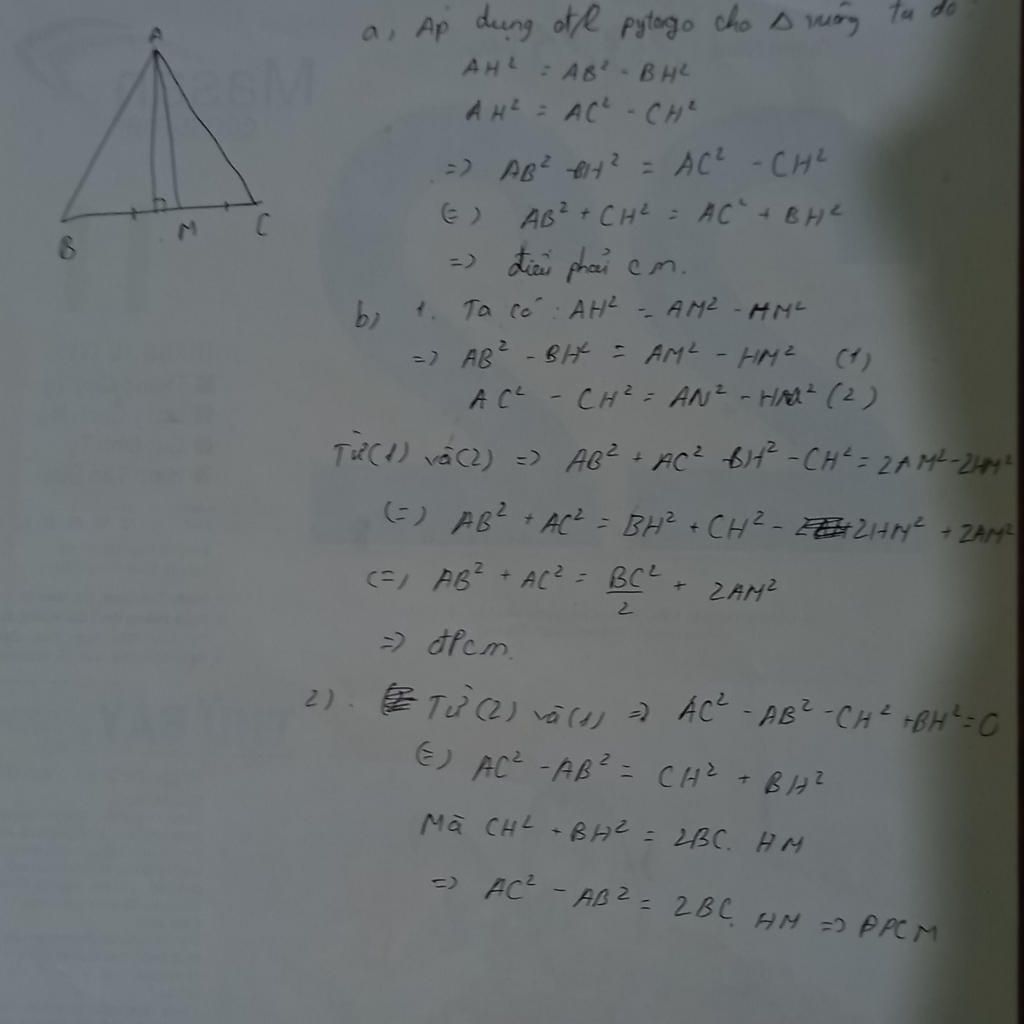 A
B
M
C
a, Áp dụng đ/l pytago cho Δ vuông ta do
AH² = AB² - BH²
AH² = AC² - CH²
=> AB² - BH² = AC² - CH²
(=) AB² + CH² = AC² + BH²
=> điều phải cm.
b, 1. Ta có : AH² = AM² - HM²
=> AB² - BH² = AM² - HM² (1)
AC² - CH² = AM² - HM² (2)
Từ (1) và (2) => AB² + AC² - BH² - CH² = 2AM² - 2HM²
(=) AB² + AC² = BH² + CH² - 2HM² + 2AM²
(=) AB² + AC² = BC²/2 + 2AM²
=> đPcm.
2). Từ (2) và (1) => AC² - AB² - CH² + BH² = 0
(=) AC² - AB² = CH² + BH²
Mà CH² + BH² = 2BC. HM
=> AC² - AB² = 2BC. HM => ĐPCM